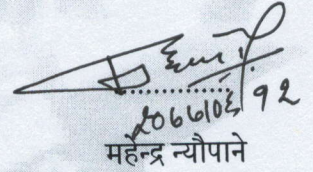 २०६६।०६।१२
महेन्द्र न्यौपाने